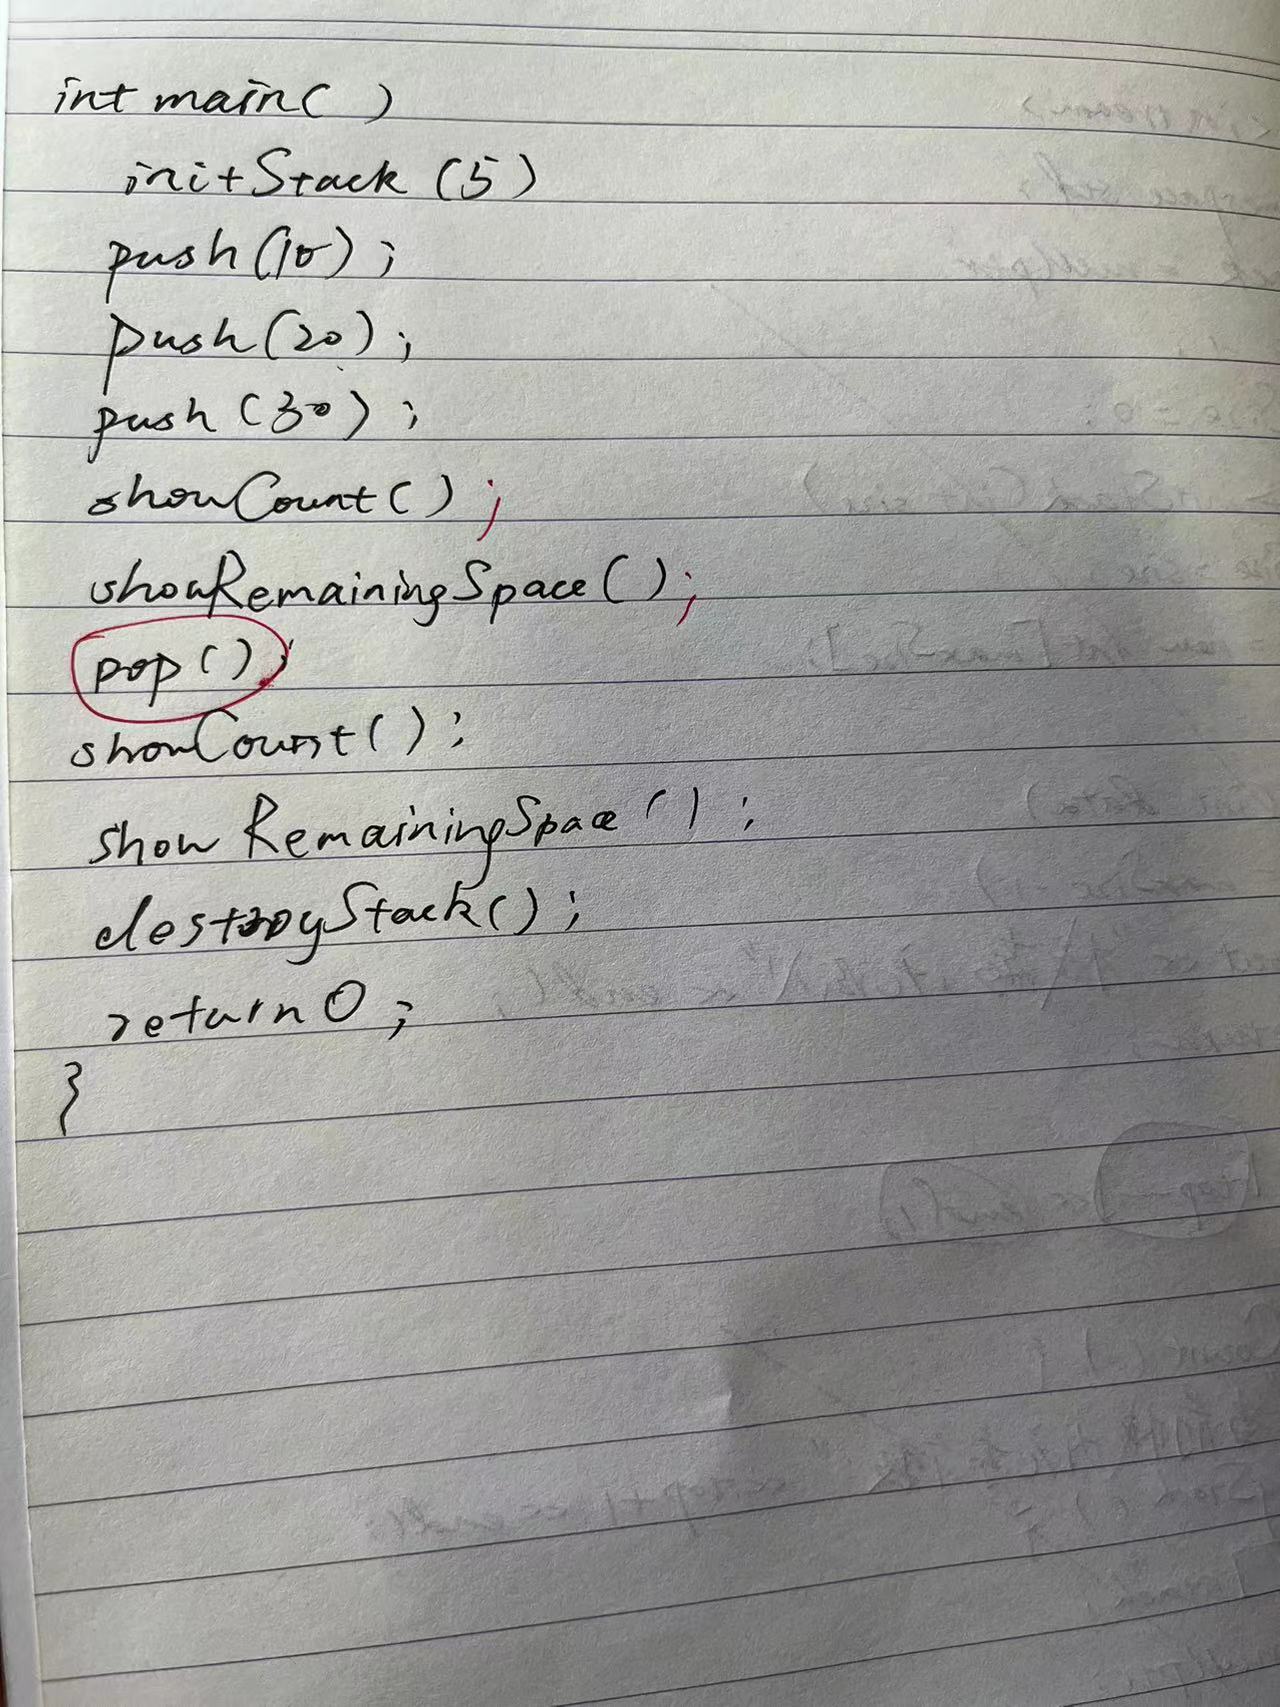 int main( )
initStack (5)
push(10);
push(20);
push(30);
showCount();
showRemainingSpace();
pop();
showCount();
show RemainingSpace();
destroyStack();
return 0;
}